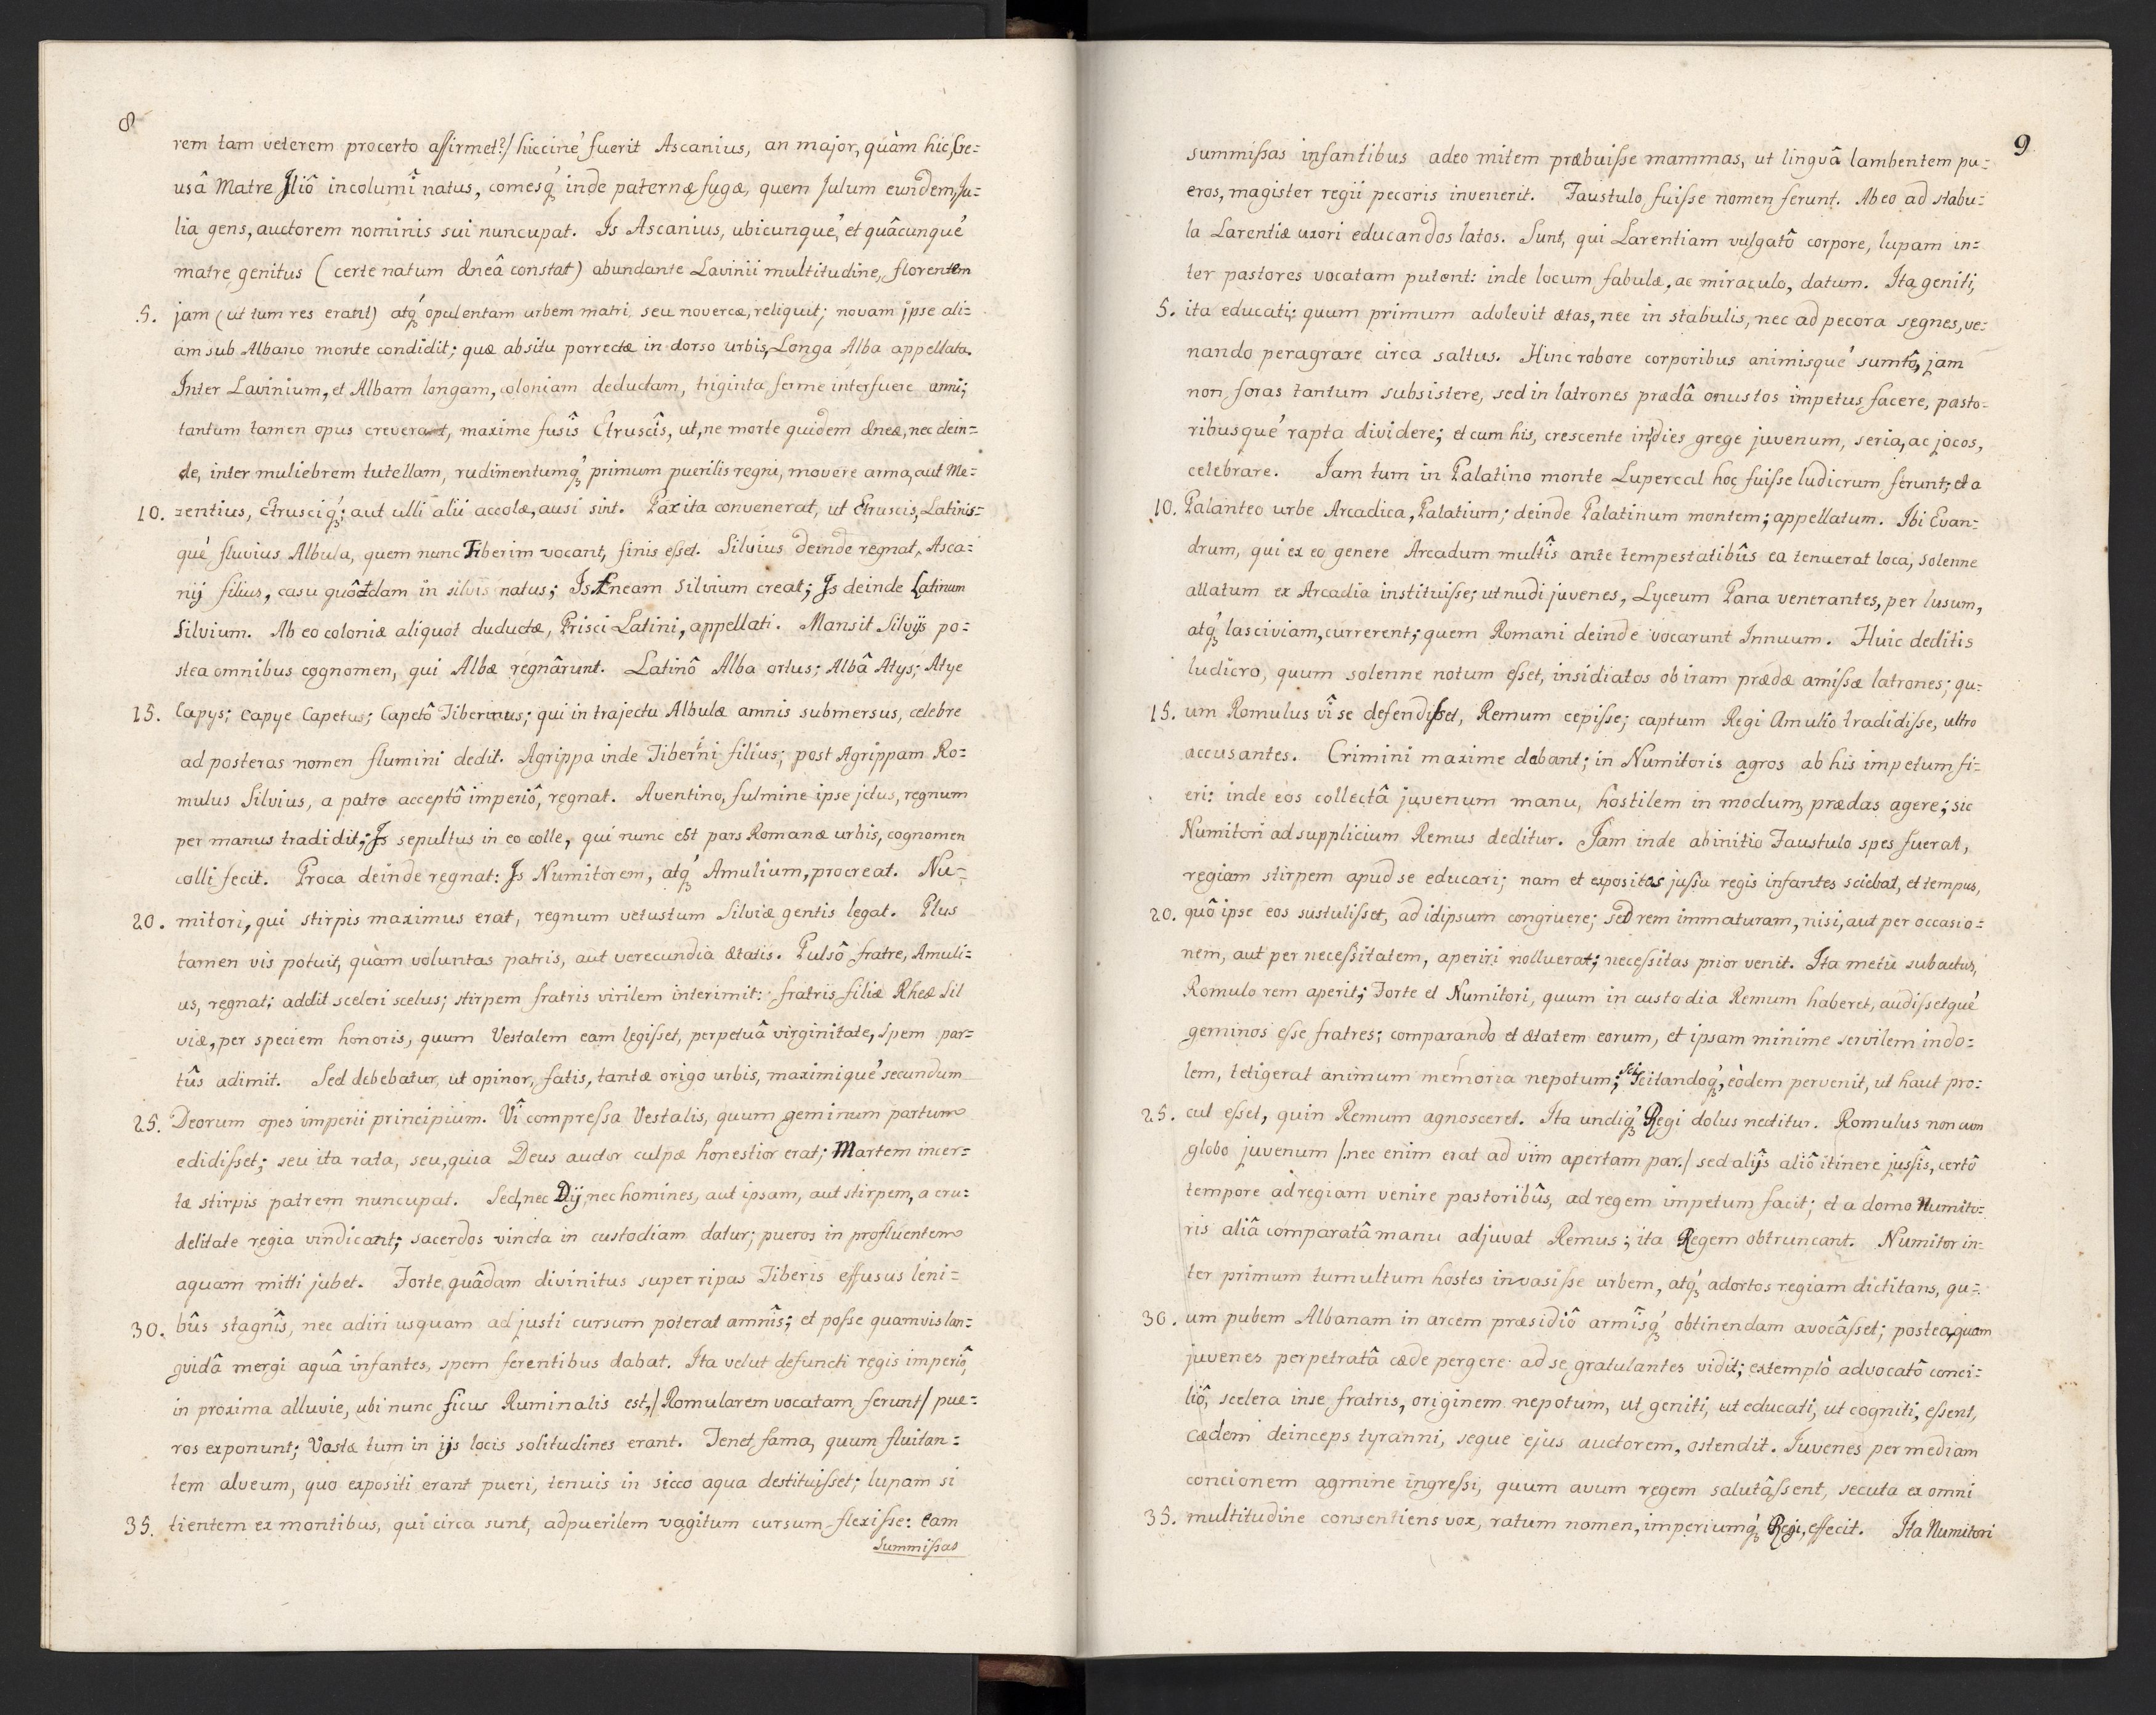 8
rem tam veterem procerto affirmet?/ hiccine fuerit Ascanius, an major, quàm hic, Cre=
usâ Matre Iliô incolumî natus, comesq́ꝫ inde paternæ fugæ, quem Julum eundem Ju=
lia gens, auctorem nominis sui nuncupat. Is Ascanius, ubicunque, et quâcunque
matre genitus (certe natum Æneâ constat) abundante Lavinii multitudine, florentem
5. jam (ut tum res erant) atq́ꝫ opulentam urbem matri, seu novercæ, reliquit; novam ipse ali=
am sub Albano monte condidit; quæ absitu porrectæ in dorso urbis, Longa Alba appellata.
Inter Lavinium, et Albam longam, coloniam deductam, triginta ferme interfuere anni;
tantum tamen opus creverant, maxime fusîs Etruscîs, ut, ne morte quidem Æneæ, nec dein=
de, inter muliebrem tutellam, rudimentumq́ꝫ primum puerilis regni, movere arma, aut Me=
10. zentius, Etrusciq́ꝫ; aut ulli alii accolæ, ausi sint. Pax ita convenerat, ut Etruscis, Latinis=
que fluvius Albula, quem nunc Tiberim vocant, finis esset. Silvius deinde regnat, Asca=
nij filius, casu quôdam in silvis natus; Is Æneam Silvium creat; Is deinde Latinum
Silvium. Ab eo coloniæ aliquot duductæ, Prisci Latini, appellati. Mansit Silvijs po=
stea omnibus cognomen, qui Albæ regnârunt. Latinô Alba ortus; Albâ Atys; Atye
15. Capys; Capye Capetus; Capetô Tiberinus; qui in trajectu Albulæ amnis submersus, celebre
ad posteras nomen flumini dedit. Agrippa inde Tiberini filius; post Agrippam Ro=
mulus Silvius, a patre acceptô imperiô, regnat. Aventino, fulmine ipse jctus, regnum
per manus tradidit; Is sepultus in eo colle, qui nunc est pars Romanæ urbis, cognomen
colli fecit. Proca deinde regnat: Is Numitorem, atq́ꝫ Amulium, procreat. Nu=
20. mitori, qui stirpis maximus erat, regnum vetustum Silviæ gentis legat. Plus
tamen vis potuit, quàm voluntas patris, aut verecundia ætatis. Pulsô fratre, Amuli=
us, regnat; addit sceleri scelus; stirpem fratris virilem interimit: fratris filiæ Rheæ Sil
viæ, per speciem honoris, quum Vestalem eam legisset, perpetuâ virginitate, spem par=
tûs adimit. Sed debebatur, ut opinor, fatis, tantæ origo urbis, maximique secundum
25. Deorum opes imperii principium. Vî compressa Vestalis, quum geminum partum
edidisset; seu ita rata, seu, quia Deus auctor culpæ honestior erat; Martem incer=
tæ stirpis patrem nuncupat. Sed, nec Dij, nec homines, aut ipsam, aut stirpem, a cru=
delitate regia vindicant; sacerdos vincta in custodiam datur; pueros in profluentem
aquam mitti jubet. Forte quâdam divinitus super ripas Tiberis effusus leni=
30. bûs stagnîs, nec adiri usquam ad justi cursum poterat amnîs; et posse quamvis lan=
guidâ mergi aquâ infantes, spem ferentibus dabat. Ita velut defuncti regis imperiô,
in proxima alluvie, ubi nunc ficus Ruminalis est,/ Romularem vocatam, ferunt/ pue=
ros exponunt; Vastæ tum in ijs locis solitudines erant. Tenet fama, quum fluitan=
tem alveum, quo expositi erant pueri, tenuis in sicco aqua destituisset; lupam si
35. tientem ex montibus, qui circa sunt, adpuerilem vagitum cursum flexisse: eam
Summissas
9
summissas infantibus adeo mitem præbuisse mammas, ut linguâ lambentem pu=
eros, magister regii pecoris invenerit. Faustulo fuisse nomen ferunt. Abeo ad stabu=
la Larentiæ uxori educandos latos. Sunt, qui Larentiam vulgatô corpore, lupam in=
ter pastores vocatam putent: inde locum fabulæ, ac miraculo, datum. Ita geniti,
5. ita educati; quum primum adolevit ætas, nec in stabulis, nec ad pecora segnes, ve=
nando peragrare circa saltus. Hinc robore corporibus animisque sumtô, jam
non foras tantum subsistere, sed in latrones prædâ onustos impetus facere, pasto=
ribusque rapta dividere; et cum his, crescente indies grege juvenum, seria, ac jocos,
celebrare. Jam tum in Palatino monte Lupercal hoc fuisse ludicrum ferunt; et a
10. Palanteo urbe Arcadica, Palatium; deinde Palatinum montem; appellatum. Ibi Evan=
drum, qui ex eo genere Arcadum multîs ante tempestatibûs ea tenuerat loca, solenne
allatum ex Arcadia instituisse; ut nudi juvenes, Lyceum Pana venerantes, per lusum,
atq́ꝫ lasciviam, currerent; quem Romani deinde vocarunt Innuum. Huic deditis
ludicro, quum solenne notum esset, insidiatos ob iram prædæ amissæ latrones; qu=
15. um Romulus vî se defendisset, Remum cepisse; captum Regi Amulio tradidisse, ultro
accusantes. Crimini maxime dabant; in Numitoris agros ab his impetum fi=
eri: inde eos collectâ juvenum manu, hostilem in modum, prædas agere; sic
Numitori ad supplicium Remus deditur. Jam inde abinitio Faustulo spes fuerat,
regiam stirpem apud se educari; nam et expositos jussu regis infantes sciebat, et tempus,
20. quô ipse eos sustulisset, ad idipsum congruere; sed rem immaturam, nisi, aut per occasio=
nem, aut per necessitatem, aperiri nolluerat; necessitas prior venit. Ita metû subactus,
Romulo rem aperit; Forte et Numitori, quum in custodia Remum haberet, audissetque
geminos esse fratres; comparando et ætatem eorum, et ipsam minime servilem indo=
lem, tetigerat animum memoria nepotum; scitandoq́ꝫ, eòdem pervenit, ut haut pro=
25. cul esset, quin Remum agnosceret. Ita undiq́ꝫ Regi dolus nectitur. Romulus non cum
globo juvenum /nec enim erat ad vim apertam par./ sed alijs aliô itinere jussîs, certô
tempore ad regiam venire pastoribûs, ad regem impetum facit; et a domo Numito=
ris aliâ comparatâ manu adjuvat Remus; ita Regem obtruncant. Numitor in=
ter primum tumultum hostes invasisse urbem, atq́ꝫ adortos regiam dictitans, qu=
30. um pubem Albanam in arcem præsidiô armîsq́ꝫ obtinendam avocâsset; postea, quam
juvenes perpetratâ cæde pergere ad se gratulantes vidit; extemplò advocatô conci=
liô, scelera inse fratris, originem nepotum, ut geniti, ut educati, ut cogniti, essent,
cædem deinceps tyranni, seque ejus auctorem, ostendit. Juvenes per mediam
concionem agmine ingressi, quum avum regem salutâssent, secuta ex omni
35. multitudine consentiens vox, ratum nomen, imperiumq́ꝫ Regi, effecit. Ita Numitori